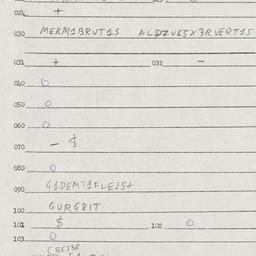 024 +
030 MERM1BRUT1S ALDZVE5X3RVERT1S
031 + 032 -
040 0
050 0
060 0
070 - $
080 0
090 G1DEMT1FLEJS+
100 GURG8IT
101 $ 102 0
103 0
CBES3R